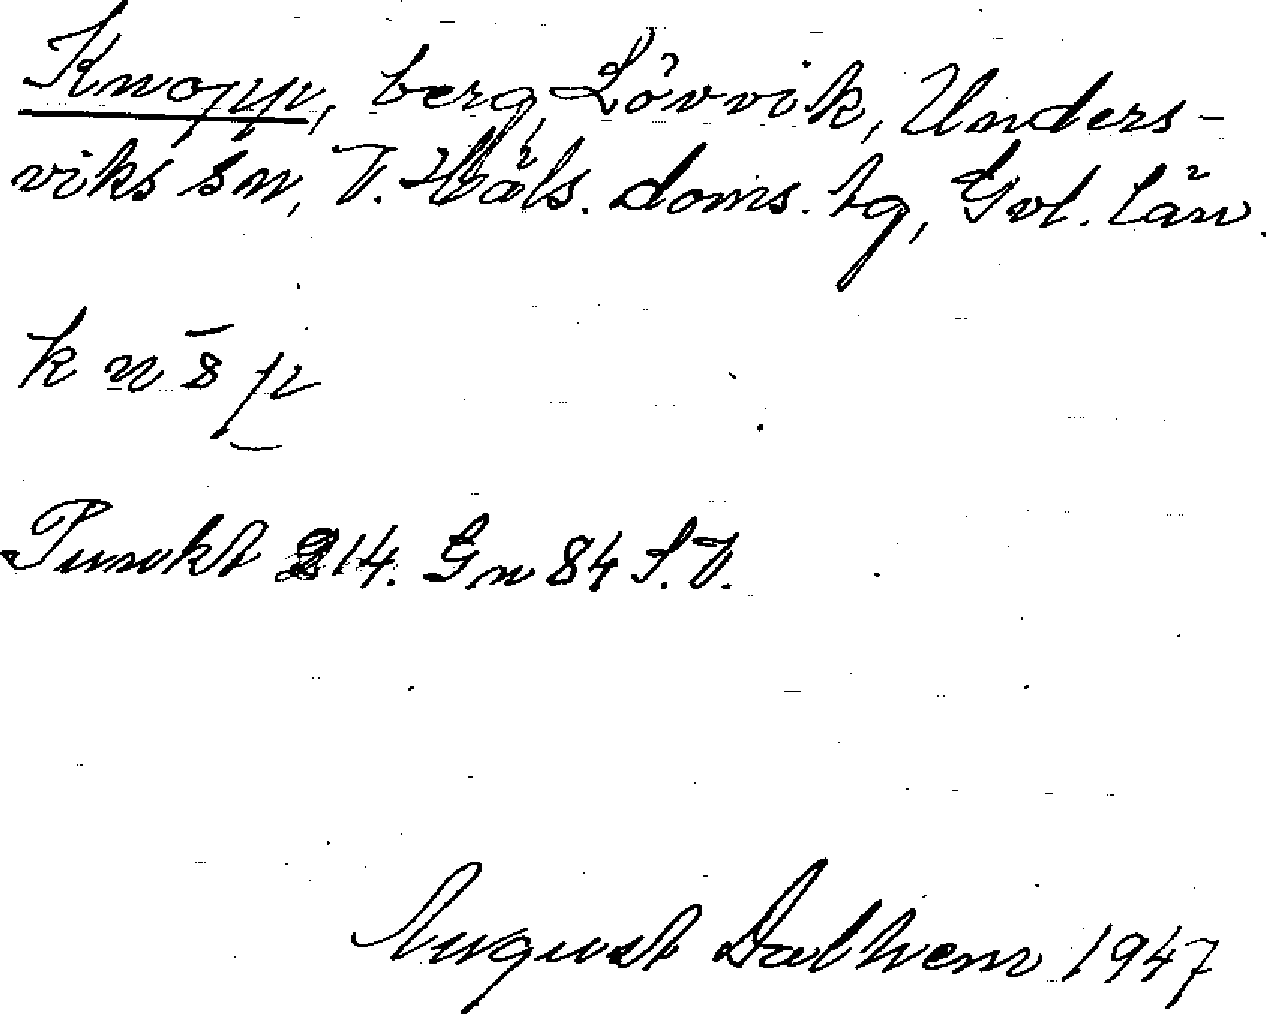 Knopp, berg, Lövvik, Unders-
viks sn, V. Häls. doms. tg, Gvl. län.
Punkt 214. Gn 84 S.V.
August Dalhem 1947